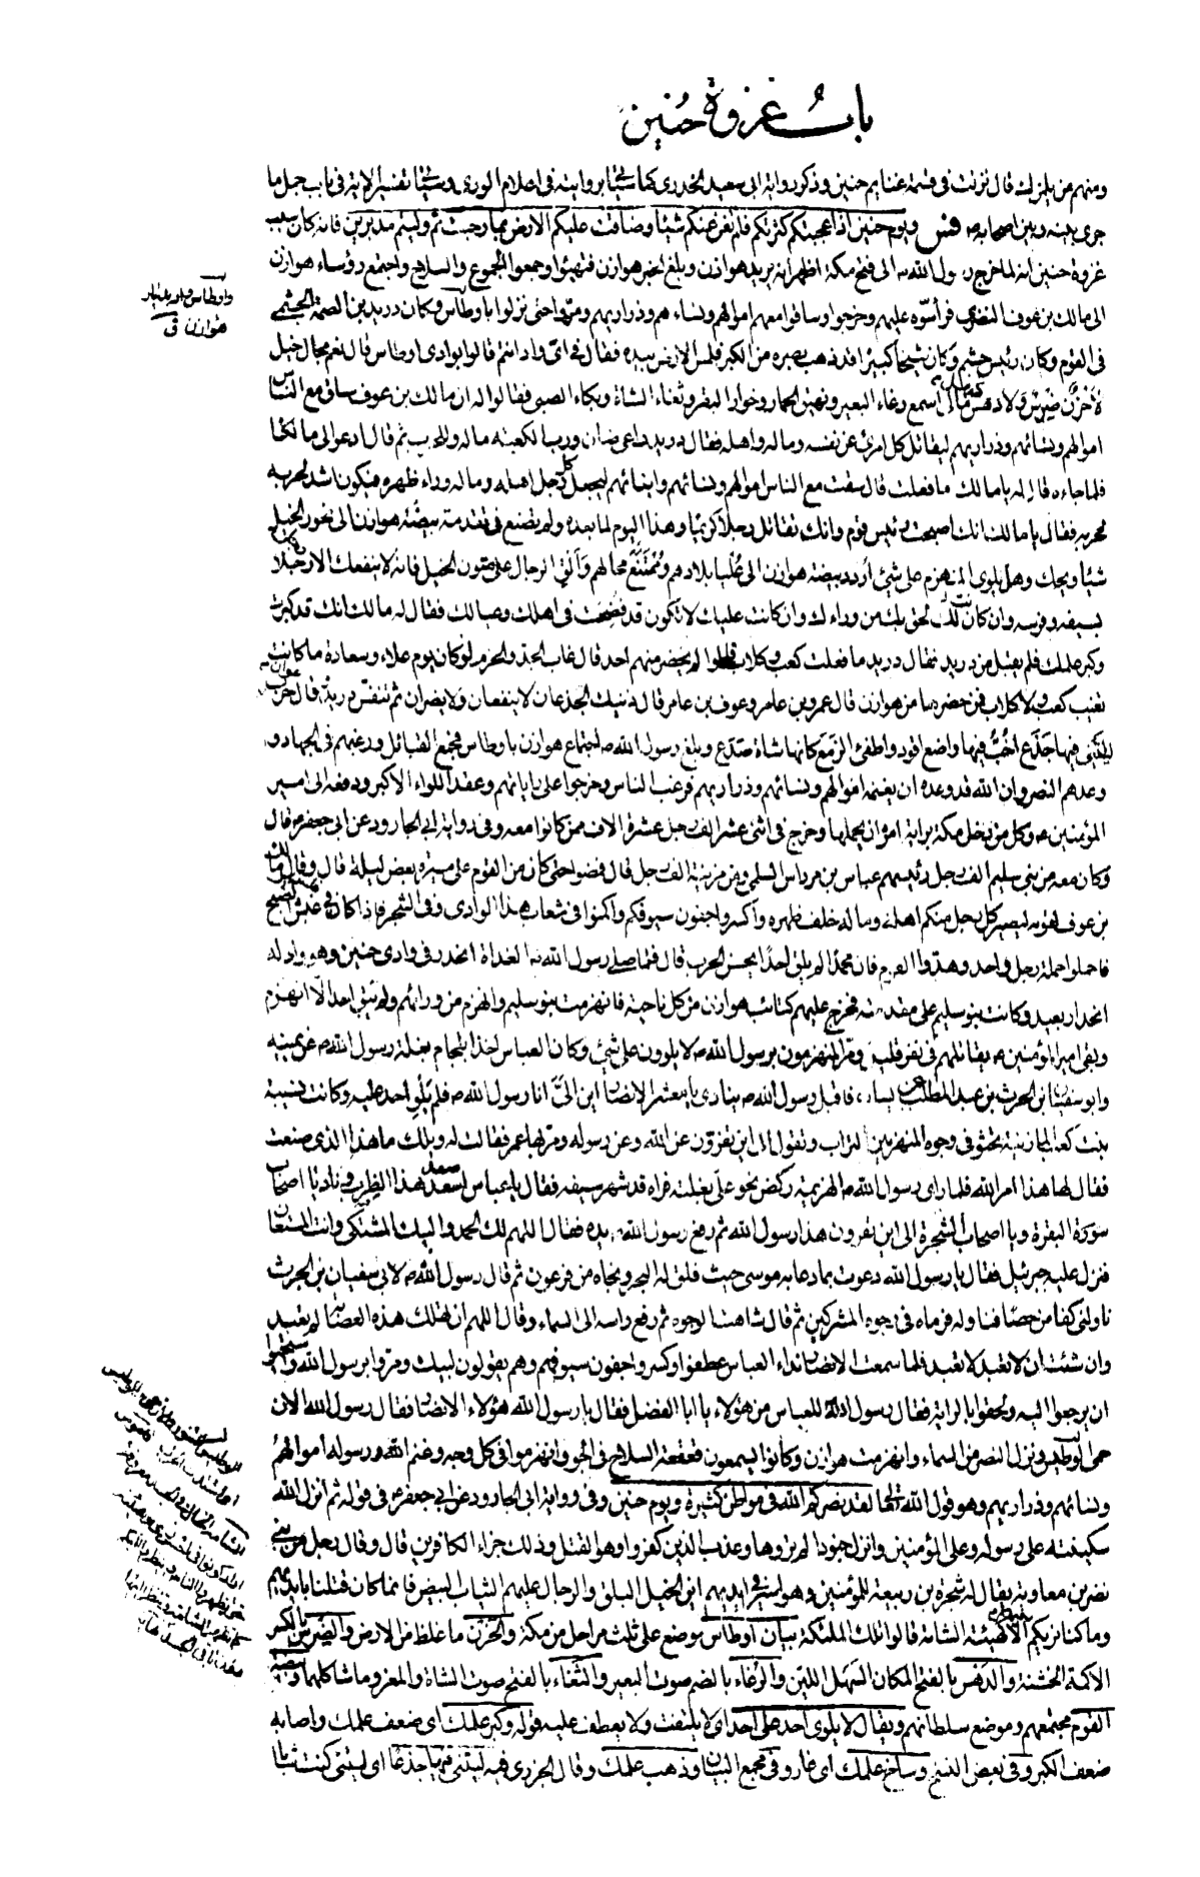 باب غزوة حنين
ومنهم من يلمزك قال نزلت في قسمة غنايم حنين وذكر رواية ابي سعيد الخدري كما سيأتي برواية في اعلام الورى وسيأتي تفسير الاية في باب جمل ما
جرى بينه وبين اصحابه ص فس ويوم حنين اذ اعجبتكم كثرتكم فلم تغن عنكم شيئا وضاقت عليكم الارض بما رحبت ثم وليتم مدبرين فانه كان سبب
غزوة حنين انه لما خرج رسول الله ص الى فتح مكة اظهر انه يريد هوازن وبلغ الخبر هوازن فتهيئوا وجمعوا الجموع والسلاح واجتمع رؤساء هوازن
الى مالك بن عوف النضري فرأسوه عليهم وخرجوا وساقوا معهم اموالهم ونساءهم وذراريهم ومروا حتى نزلوا باوطاس وكان دريد بن الصمة الجشمي
في القوم وكان رئيس جشم وكان شيخا كبيرا قد ذهب بصره من الكبر فلمس الارض بيده فقال في اي واد انتم قالوا بوادي اوطاس قال نعم مجال خيل
لا حزن ضرس ولا سهل دهس مالي اسمع رغاء البعير ونهيق الحمار وخوار البقر وثغاء الشاة وبكاء الصبي فقالوا له ان مالك بن عوف ساق مع الناس
اموالهم ونسائهم وذراريهم ليقاتل كل امرئ عن نفسه وماله واهله فقال دريد راعي ضأن ورب الكعبة ماله وللحرب ثم قال ادعوا لي مالكا
فلما جاءه قال له يا مالك ما فعلت قال سقت مع الناس اموالهم ونسائهم وابنائهم ليجعل كل رجل اهله وماله وراء ظهره فيكون اشد لحربه
فقال يا مالك انك اصبحت رئيس قوم وانك تقاتل رجلا كريما وهذا اليوم لما بعده ولم تصنع في تقدمة بيضة هوازن الى نحور الخيل
شيئا ويحك وهل يلوي المنهزم على شيئ اردد بيضة هوازن الى عليا بلادهم وممتنع محالهم وألق الرجال على متون الخيل فانه لا ينفعك الا رجل
بسيفه وفرسه وان كانت لك لحق بك من وراءك وان كانت عليك لا تكون قد فضحت في اهلك وعيالك فقال له مالك انك قد كبرت
وكبر علمك فلم يقبل من دريد فقال دريد ما فعلت كعب وكلاب قالوا لم يحضر منهم احد قال غاب الجد والحزم لو كان يوم علاء وسعادة ما كانت
تغيب كعب ولا كلاب فمن حضرها من هوازن قال عمرو بن عامر وعوف بن عامر قال ذينك الجذعان لا ينفعان ولا يضران ثم تنفس دريد قال حرب عوان
ليتني فيها جذع اخب فيها واضع اقود وطفاء الزمع كانها شاة صدع وبلغ رسول الله ص اجتماع هوازن باوطاس فجمع القبائل ورغبهم في الجهاد و
وعدهم النصر وان الله قد وعده ان يغنمه اموالهم ونسائهم وذراريهم فرغب الناس وخرجوا على راياتهم وعقد اللواء الاكبر ودفعه الى امير
المؤمنين ع وكل من دخل مكة براية امره ان يحملها وخرج في اثنى عشر الف رجل عشرة الاف ممن كانوا معه وفي رواية ابي الجارود عن ابي جعفر ع قال
وكان معه من بني سليم الف رجل رئيسهم عباس بن مرداس السلمي ومن مزينة الف رجل قال فمضوا حتى كان من القوم على مسيرة بعض ليلة قال وقال مالك
بن عوف لقومه ليصير كل رجل منكم اهله وماله خلف ظهره واكسروا جفون سيوفكم واكمنوا في شعاب هذا الوادي وفي الشجر فاذا كان في غبش الصبح
فاحملوا حملة رجل واحد وهدوا القوم فان محمدا لم يلق احدا يحسن الحرب قال فلما صلى رسول الله ص الغداة انحدر في وادي حنين وهو واد له
انحدار بعيد وكانت بنو سليم على مقدمته فخرج عليهم كتائب هوازن من كل ناحية فانهزمت بنو سليم وانهزم من ورائهم ولم يبق احد الا انهزم
وبقى امير المؤمنين ع يقاتلهم في نفر قليل ومر المنهزمون برسول الله ص لا يلوون على شيئ وكان العباس اخذا بلجام بغلة رسول الله ص عن يمينه
وابو سفيان بن الحرث بن عبد المطلب عن يساره فاقبل رسول الله ص ينادي يا معشر الانصار اين الي انا رسول الله ص فلم يلو احد عليه وكانت نسيبة
بنت كعب المازنية تحثو في وجوه المنهزمين التراب وتقول الى اين تفرون عن الله وعن رسوله ومر بها عمر فقالت له ويلك ما هذا الذي صنعت
فقال لها هذا امر الله فلما راى رسول الله ص الهزيمة ركض نحو علي بغلته فراه قد شهر سيفه فقال يا عباس اصعد هذا الظرب وناد يا اصحاب
سورة البقرة ويا اصحاب الشجرة الى اين تفرون هذا رسول الله ثم رفع رسول الله ص يده فقال اللهم لك الحمد واليك المشتكى وانت المستعان
فنزل عليه جبرئيل فقال يا رسول الله دعوت بما دعا به موسى حيث فلق له البحر ونجاه من فرعون ثم قال رسول الله ص لابي سفيان بن الحرث
ناولني كفا من حصا فناوله فرماه في وجوه المشركين ثم قال شاهت الوجوه ثم رفع راسه الى السماء وقال اللهم ان تهلك هذه العصابة لم تعبد
وان شئت ان لا تعبد لا تعبد فلما سمعت الانصار نداء العباس عطفوا وكسروا جفون سيوفهم وهم يقولون لبيك ومروا برسول الله واستحيوا
ان يرجعوا اليه ولحقوا بالراية فقال رسول الله للعباس من هؤلاء يا ابا الفضل فقال يا رسول الله هؤلاء الانصار فقال رسول الله الان
حمى الوطيس ونزل النصر من السماء وانهزمت هوازن وكانوا يسمعون قعقعة السلاح في الجو وانهزموا في كل وجه وغنم الله ورسوله اموالهم
ونسائهم وذراريهم وهو قول الله تعالى لقد نصركم الله في مواطن كثيرة ويوم حنين وفي رواية ابي الجارود عن ابي جعفر ع في قوله ثم انزل الله
سكينته على رسوله وعلى المؤمنين وانزل جنودا لم تروها وعذب الذين كفروا وهو القتل وذلك جزاء الكافرين قال وقال رجل من بني
نضر بن معاوية يقال له شجرة بن ربيعة للمؤمنين وهو اسير في ايديهم اين الخيل البلق والرجال عليهم الثياب البيض فانما كان قتلنا بايديهم
وما كنا نريكم فيهم الا كهيئة الشامة قالوا تلك الملئكة بيان اوطاس موضع على ثلث مراحل من مكة والحزن ما غلظ من الارض والضرس بالكسر
الاكمة الخشنة والدهس بالفتح المكان السهل اللين والرغاء بالضم صوت البعير والثغاء بالفتح صوت الشاة والمعز وما شاكلهما وبيضة
القوم مجتمعهم وموضع سلطانهم ويقال لا يلوي احد على احد اي لا يلتفت ولا يعطف عليه قوله وكبر علمك اي ضعف علمك واصابه
ضعف الكبر وفي بعض النسخ وساخ علمك اي غار وفي مجمع البيان وذهب علمك وقال الجزري فيه ليتني فيها جذعا اي ليتني كنت شابا
واوطاس واد بديار
هوازن ق